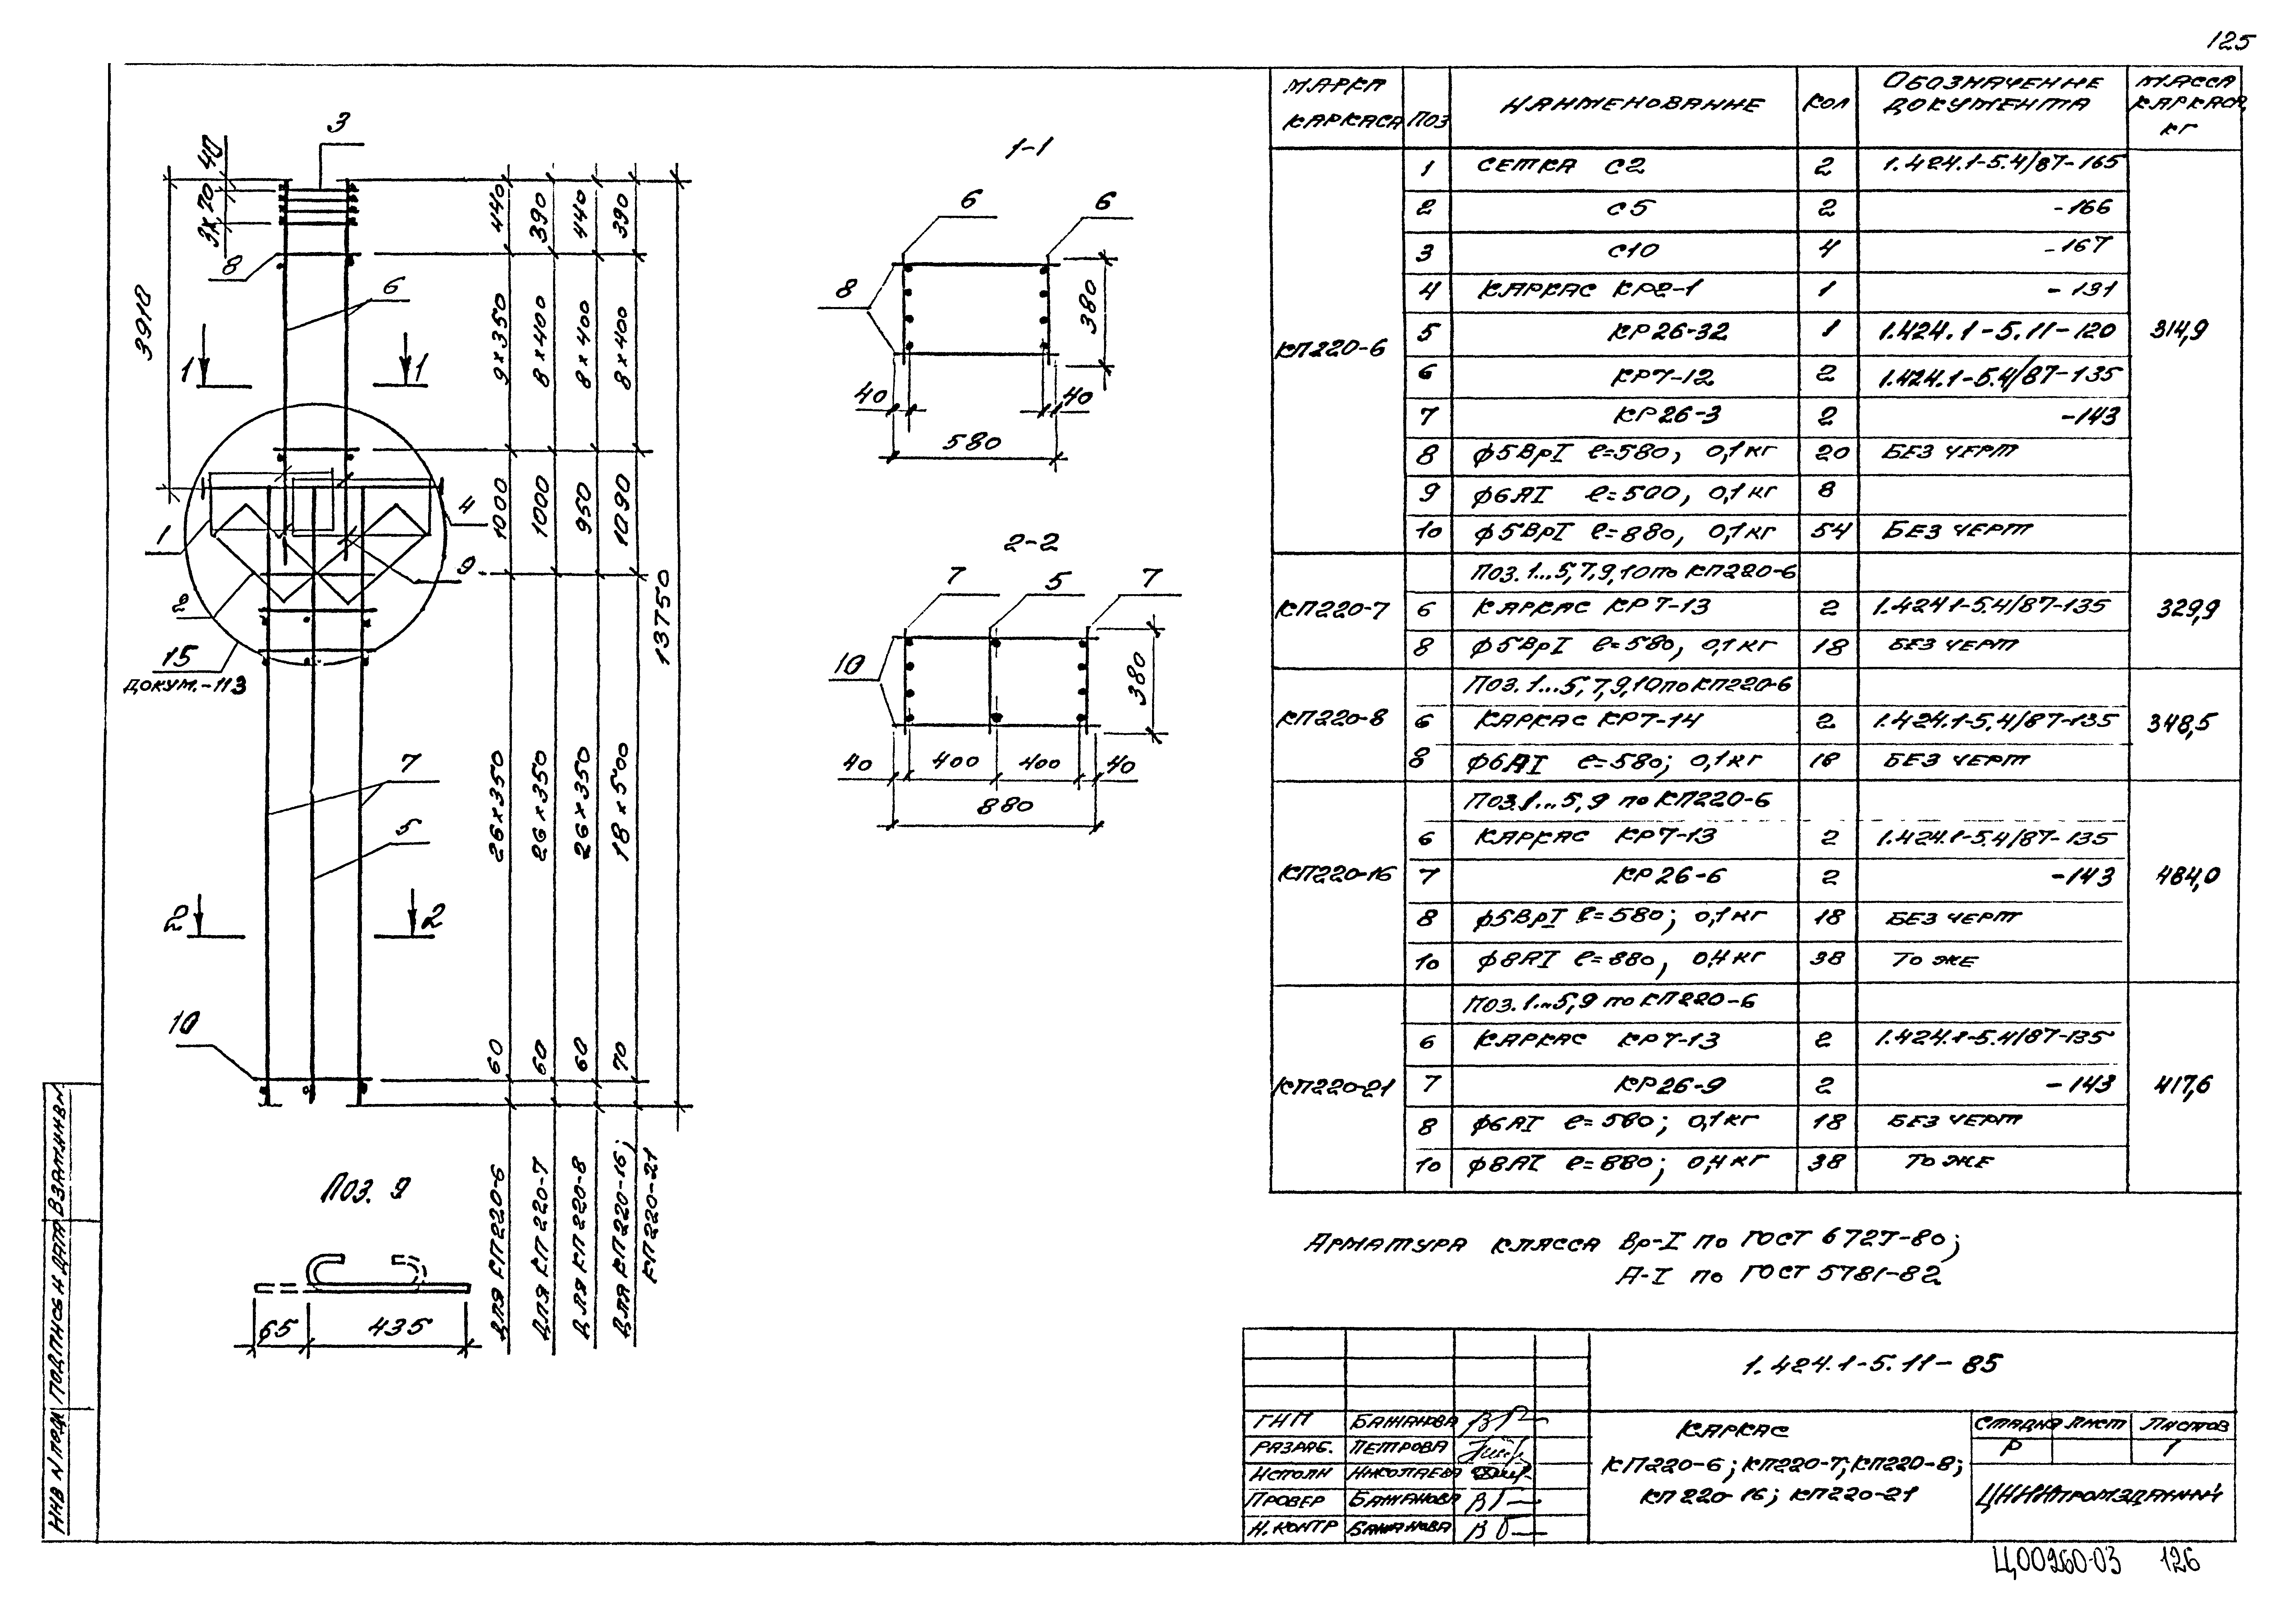 125
3
40
3×70
3910
8
6
1
1
440
390
440
390
9×350
8×400
8×400
8×400
1000
1000
950
1090
13750
1
4
9
2
15
ДОКУМ.-113
7
5
26×350
26×350
26×350
18×500
2
2
10
60
60
60
70
ДЛЯ КП220-6
ДЛЯ КП220-7
ДЛЯ КП220-8
ДЛЯ КП220-16;
КП220-21
ПОЗ. 9
65
435
1-1
6
6
8
380
40
40
580
2-2
7
5
7
10
380
40
400
400
40
880
МАРКА КАРКАСА
ПОЗ
НАИМЕНОВАНИЕ
КОЛ
ОБОЗНАЧЕНИЕ ДОКУМЕНТА
МАССА КАРКАСА, КГ
КП220-6
314,9
1 СЕТКА С2 2 1.424.1-5.4/87-165
2 С5 2 -166
3 С10 4 -167
4 КАРКАС КР2-1 1 -131
5 КР26-32 1 1.424.1-5.11-120
6 КР7-12 2 1.424.1-5.4/87-135
7 КР26-3 2 -143
8 ф5ВрI ℓ=580, 0,1кг 20 БЕЗ ЧЕРТ
9 ф6АI ℓ=500, 0,1кг 8
10 ф5ВрI ℓ=880, 0,1кг 54 БЕЗ ЧЕРТ
КП220-7
329,9
ПОЗ. 1...5,7,9,10 по КП220-6
6 КАРКАС КР7-13 2 1.424.1-5.4/87-135
8 ф5ВрI ℓ=580, 0,1кг 18 БЕЗ ЧЕРТ
КП220-8
348,5
ПОЗ. 1...5,7,9,10 по КП220-6
6 КАРКАС КР7-14 2 1.424.1-5.4/87-135
8 ф6АI ℓ=580; 0,1кг 18 БЕЗ ЧЕРТ
КП220-16
484,0
ПОЗ.1...5,9 по КП220-6
6 КАРКАС КР7-13 2 1.424.1-5.4/87-135
7 КР26-6 2 -143
8 ф5ВрI ℓ=580; 0,1кг 18 БЕЗ ЧЕРТ
10 ф8АI ℓ=880, 0,4кг 38 ТО ЖЕ
КП220-21
417,6
ПОЗ. 1...5,9 по КП220-6
6 КАРКАС КР7-13 2 1.424.1-5.4/87-135
7 КР26-9 2 -143
8 ф6АI ℓ=580; 0,1кг 18 БЕЗ ЧЕРТ
10 ф8АI ℓ=880; 0,4кг 38 ТО ЖЕ
АРМАТУРА КЛАССА Вр-I по ГОСТ 6727-80;
А-I по ГОСТ 5781-82
1.424.1-5.11-85
ГИП БАЖАНОВА
РАЗРАБ. ПЕТРОВА
ИСПОЛН НИКОЛАЕВА
ПРОВЕР БАЖАНОВА
Н.КОНТР БАЖАНОВА
КАРКАС
КП220-6; КП220-7; КП220-8;
КП220-16; КП220-21
СТАДИЯ ЛИСТ ЛИСТОВ
Р 1
ЦНИИПРОМЗДАНИЙ
ИНВ N ПОДЛ ПОДПИСЬ И ДАТА ВЗАМ ИНВ N
Ц00260-03 126